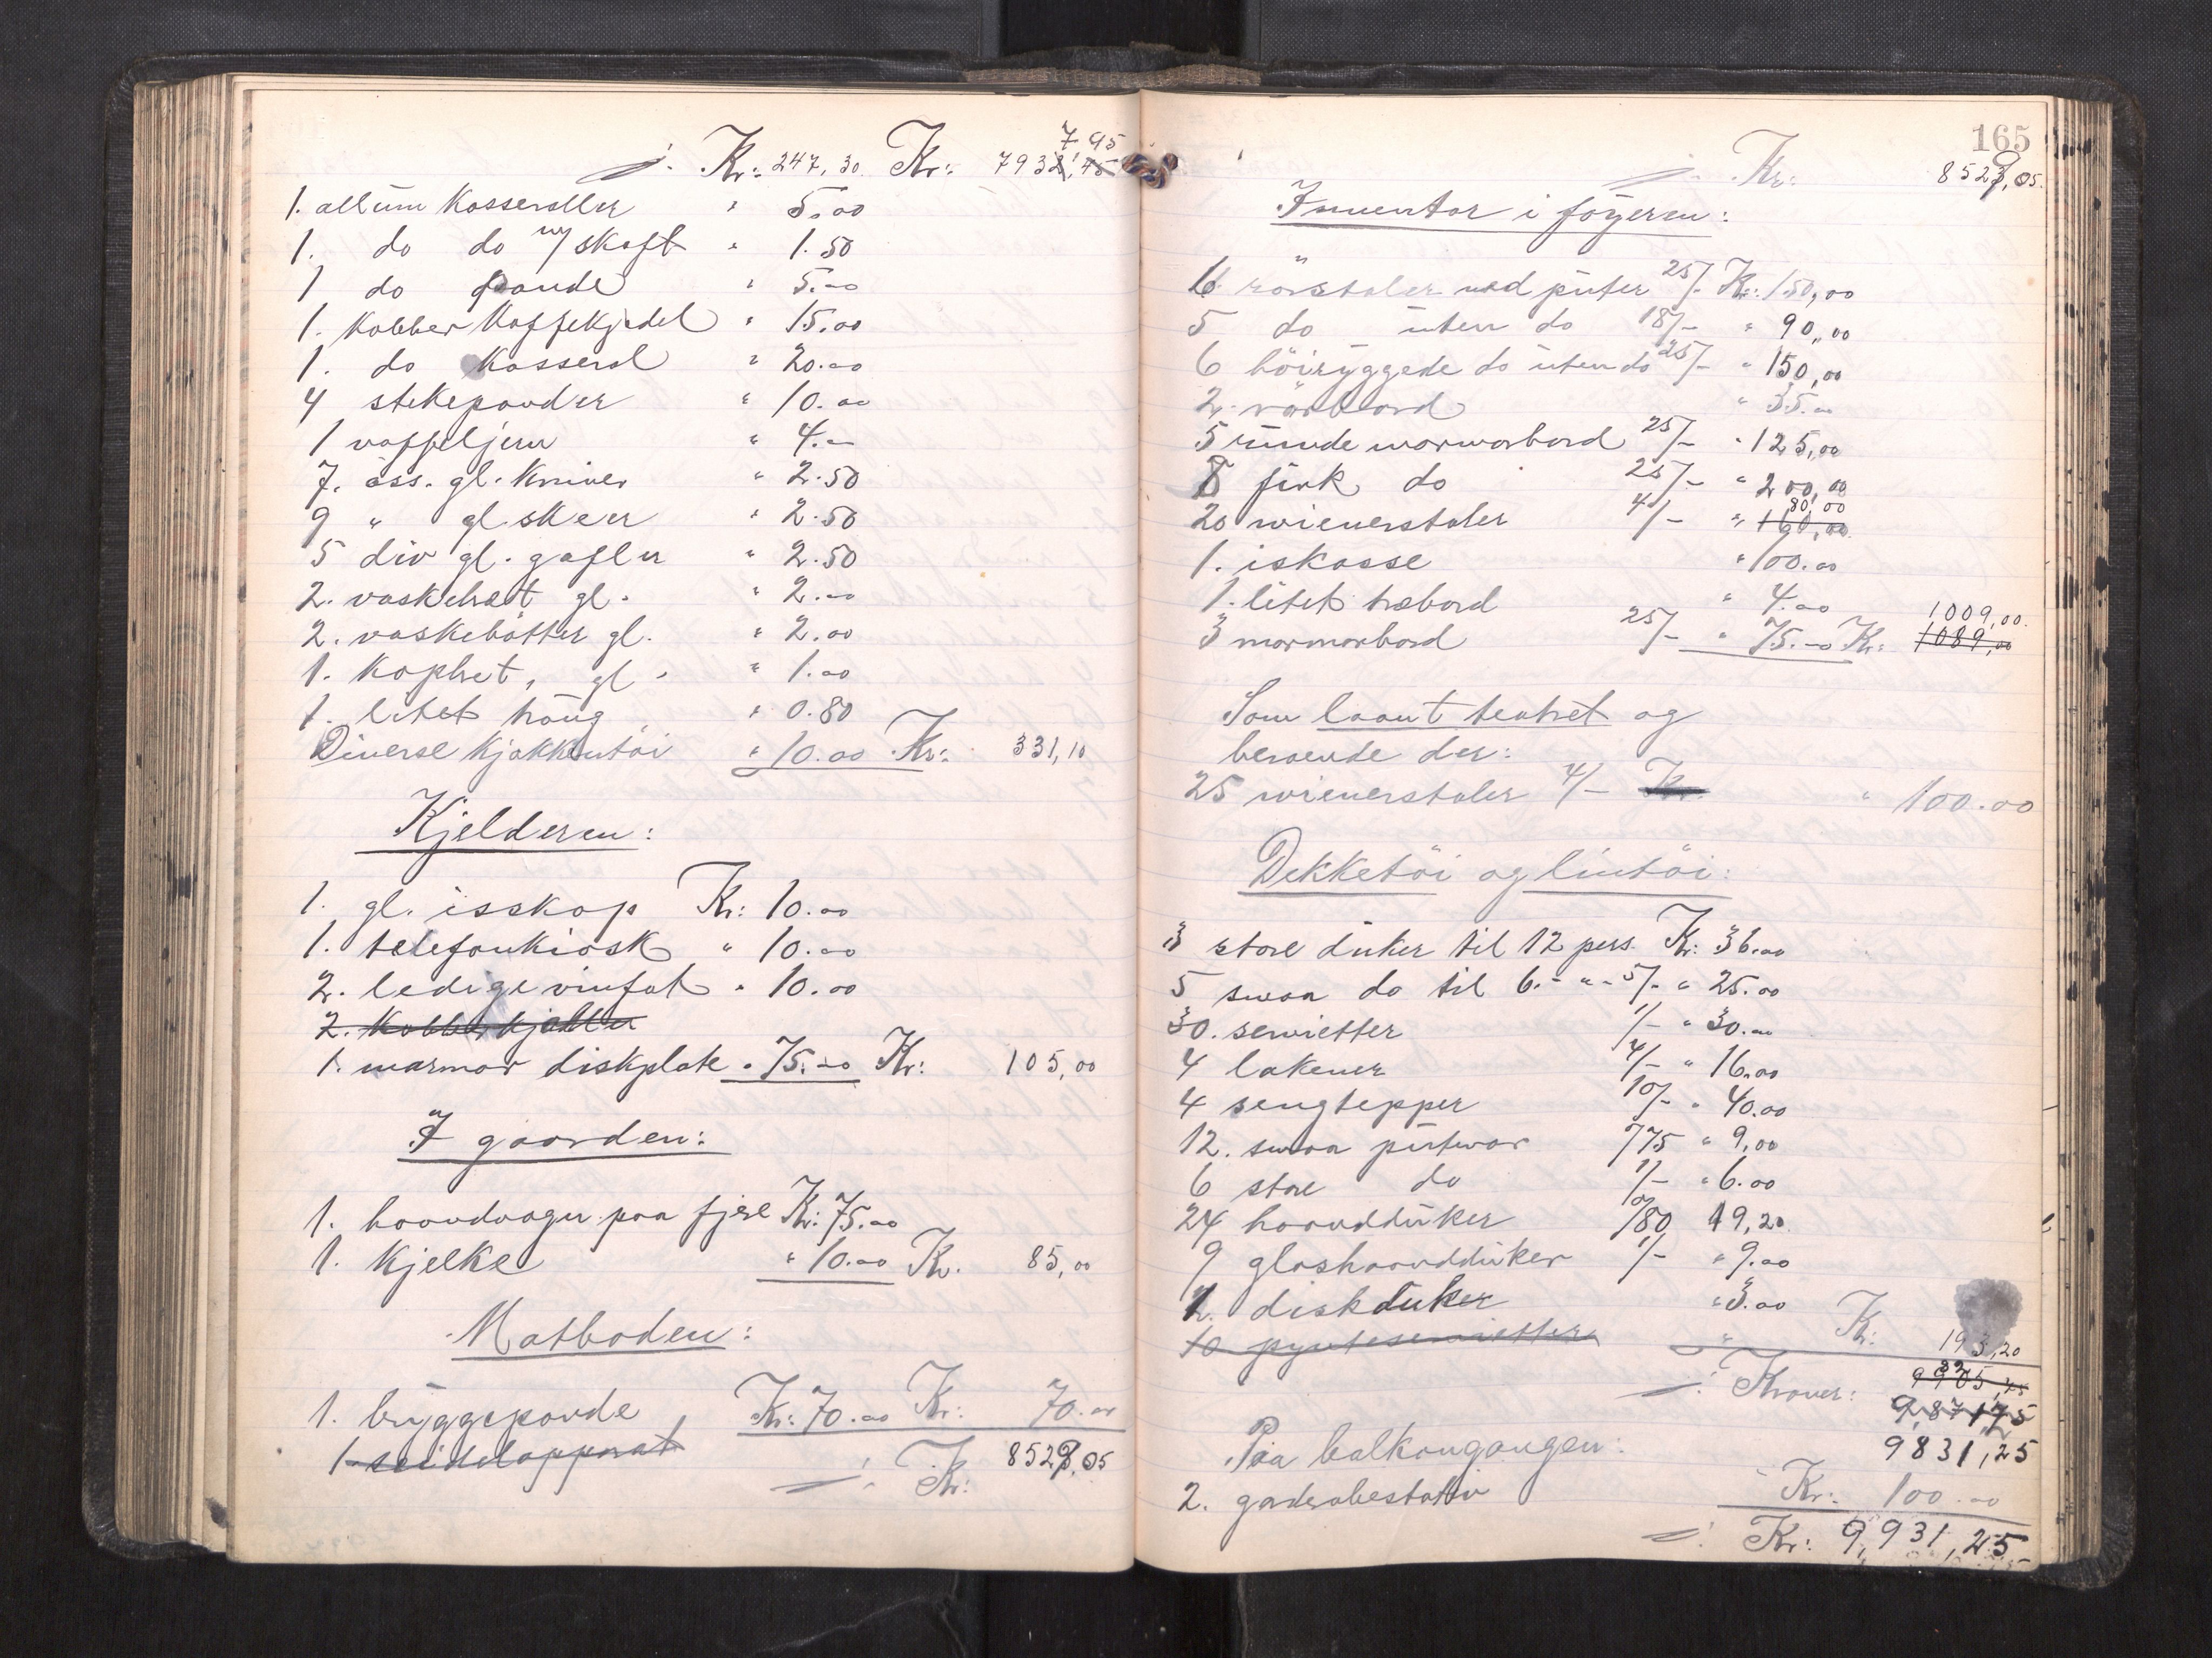 ./. Kr: 247,30 Kr: 7937,95
1. allum Kasseroller " 5.00
1. do do m/skaft " 1.50
1 do pande " 5.00
1. Kobber Kaffekjedel " 15.00
1. do Kasserol " 20.00
4 stekepander " 10.00
1 vaffeljern " 4.00
7. ass. gl. kniver " 2.50
9 " gl. skeer " 2.50
5 div gl. gafler " 2.50
2. vasketræt gl. " 2.00
2. vaskebøtter gl. " 2.00
1. kophet, gl. " 1.00
1. litet traug " 0.80
Diverse Kjøkkentöi " 10.00 Kr: 331,10
Kjelderen:
1. gl. isskap Kr: 10.00
1. telefonkiosk " 10.00
2. ledige vinfat " 10.00
2. Kobberkjedler
1. marmor diskplate " 75.00 Kr: 105,00
I gaarden:
1. haandvogn paa fjær Kr: 75.00
1. Kjelke " 10.00 Kr. 85,00
Matboden:
1. bryggepande Kr: 70.00 Kr: 70.00
1 seidelapparat
./. Kr: 8529,05
165
./. Kr: 8529,05
Inventar i foyeren:
6 rörstoler med puter 25/- Kr: 150,00
5 do uten do 18/- " 90,00
6 höiryggede do uten do 25/- " 150,00
2. rörbord " 35.00
5 runde marmorbord 25/- " 125,00
8 firk do 25/- " 200,00
80,00
20 wienerstoler 4/- " 160,00
1. iskasse " 100.00
1. litet træbord " 4.00
1009,00
3 marmorbord 25/- " 75.00 Kr: 1089,00
Som laant teatret og
beroende der:
25 wienerstoler 4/- Kr. " 100.00
Dekketöi og lintöi:
3 store duker til 12 pers. Kr: 36.00
5 smaa do til 6. - " - 5/- " 25.00
30. servietter 1/- " 30.00
4 lakener 4/- " 16.00
4 sengtepper 10/- " 40.00
12. smaa putevar /75 " 9,00
6 store do 1/- " 6.00
24 haandduker /80 19,20
9 glashaandduker 1/- " 9.00
2. diskduker " 3.00
10 pynteservietter " Kr: 193,20
./. Kroner:
9,871,75
9831,25
Paa balkongangen:
2. garderobestativ Kr: 100.00
./. Kr: 9,931,25